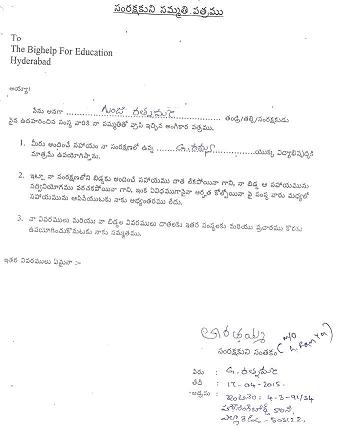 సంరక్షకుని సమ్మతి పత్రము
To
The Bighelp For Education
Hyderabad
అయ్యా!
నేను అనగా ............ తండ్రి/తల్లి/సంరక్షకుడు
పైన ఉదహరించిన సంస్థ వారికి నా సమ్మతితో వ్రాసి ఇచ్చిన అంగీకార పత్రము.
1. మీరు అందించే సహాయం నా సంరక్షణలో ఉన్న ............ యొక్క విద్యాభివృద్ధికి
మాత్రమే ఉపయోగిస్తాను.
2. ఇట్లా నా సంరక్షణలోని బిడ్డకు అందించే సహాయము దాత లేకపోయినా గాని, నా బిడ్డ ఆ సహాయమును
సద్వినియోగము పరచకపోయినా గాని, ఇంక ఏవిధముగానైనా అర్హత కోల్పోయినా పై సంస్థ వారు మధ్యలో
సహాయమును ఆపివేయుటకు నాకు అభ్యంతరము లేదు.
3. నా వివరములు మరియు నా బిడ్డల వివరములు దాతలకు ఇతర సంస్థలకు మరియు ప్రచారము కొరకు
ఉపయోగించుకొనుటకు నాకు సమ్మతము.
ఇతర వివరములు ఏమైనా :-
సంరక్షకుని సంతకం
పేరు :
తేది : 17-04-2015.
అడ్రసు : 4-3-91/34
503122.